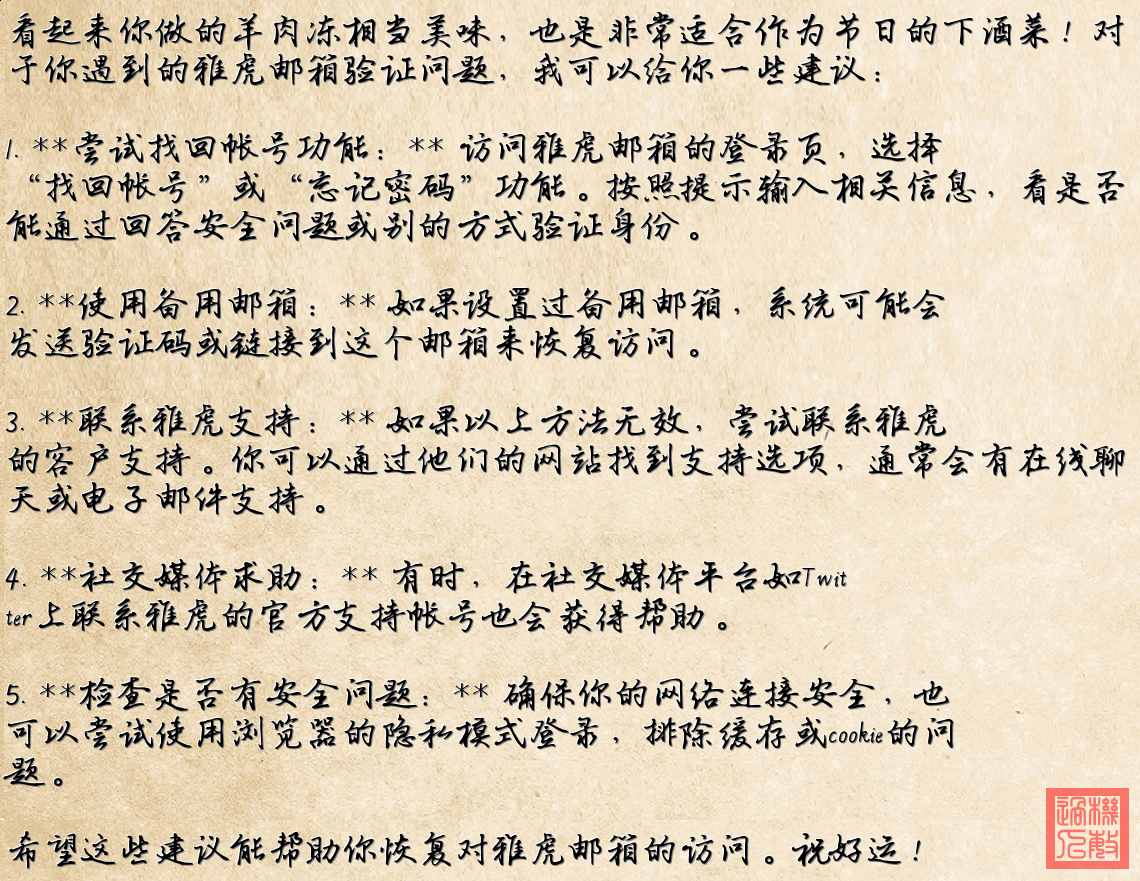 看起来你做的羊肉冻相当美味，也是非常适合作为节日的下酒菜！对
于你遇到的雅虎邮箱验证问题，我可以给你一些建议：
1. **尝试找回帐号功能：** 访问雅虎邮箱的登录页，选择
“找回帐号”或“忘记密码”功能。按照提示输入相关信息，看是否
能通过回答安全问题或别的方式验证身份。
2. **使用备用邮箱：** 如果设置过备用邮箱，系统可能会
发送验证码或链接到这个邮箱来恢复访问。
3. **联系雅虎支持：** 如果以上方法无效，尝试联系雅虎
的客户支持。你可以通过他们的网站找到支持选项，通常会有在线聊
天或电子邮件支持。
4. **社交媒体求助：** 有时，在社交媒体平台如Twit
ter上联系雅虎的官方支持帐号也会获得帮助。
5. **检查是否有安全问题：** 确保你的网络连接安全，也
可以尝试使用浏览器的隐私模式登录，排除缓存或cookie的问
题。
希望这些建议能帮助你恢复对雅虎邮箱的访问。祝好运！